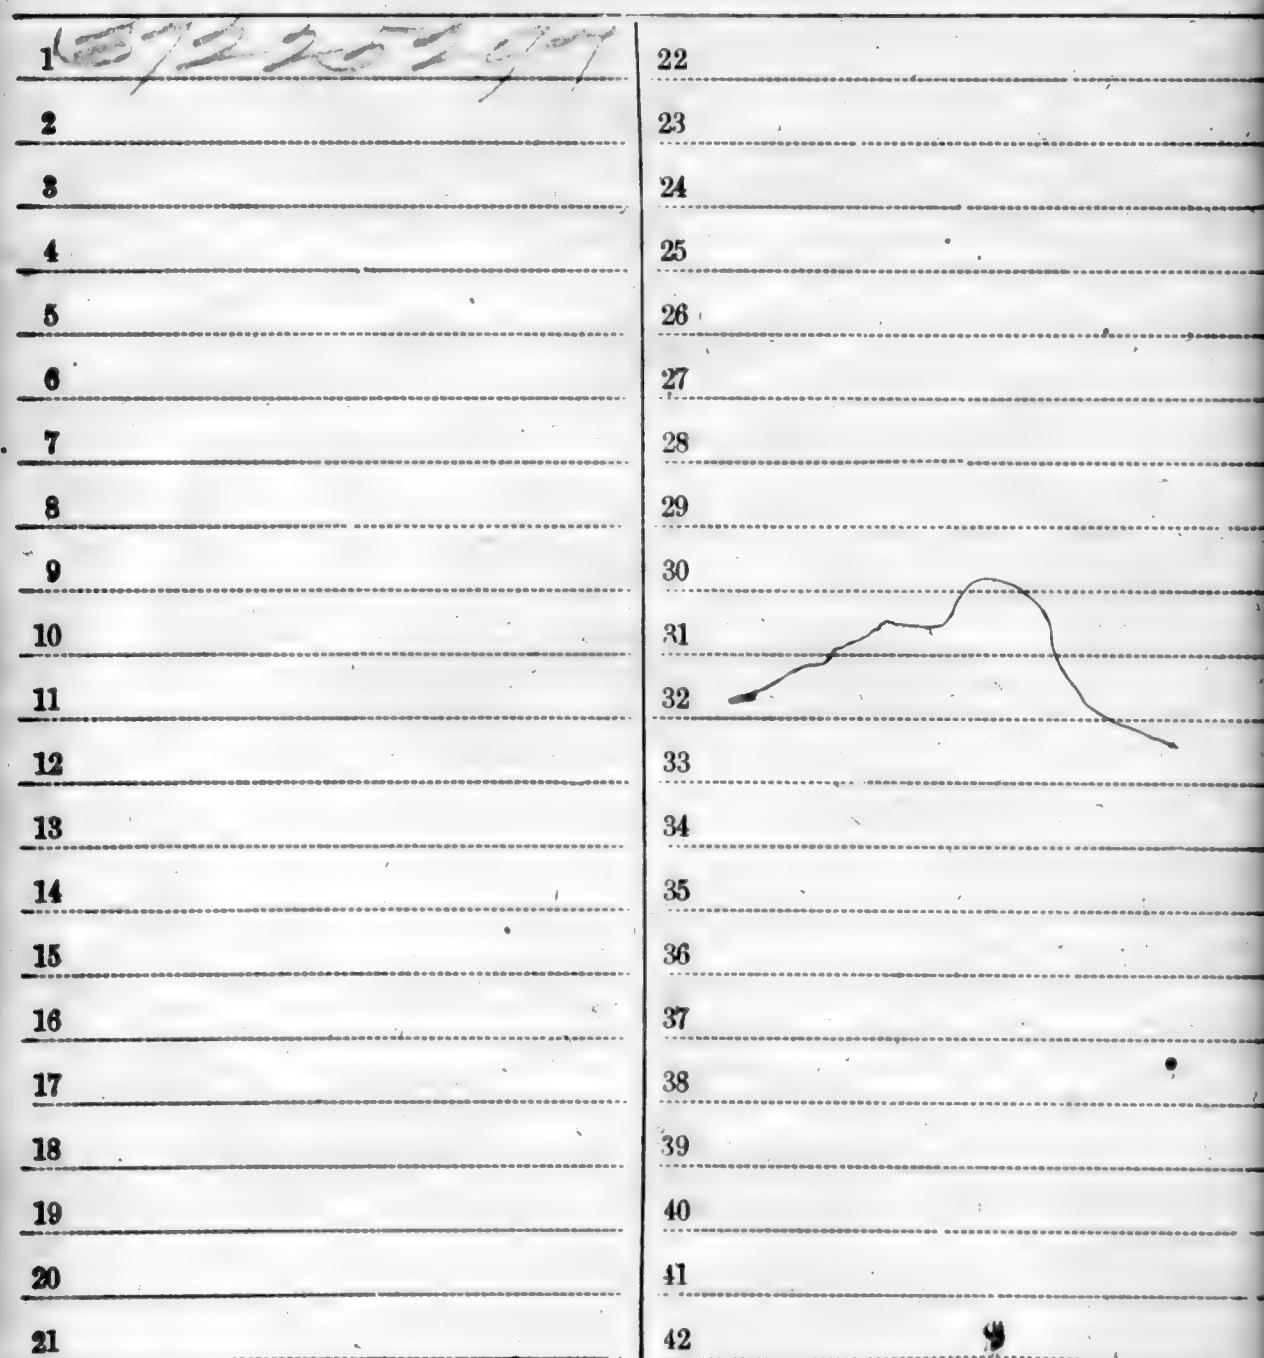 1
2
3
4
5
6
7
8
9
10
11
12
13
14
15
16
17
18
19
20
21
22
23
24
25
26
27
28
29
30
31
32
33
34
35
36
37
38
39
40
41
42